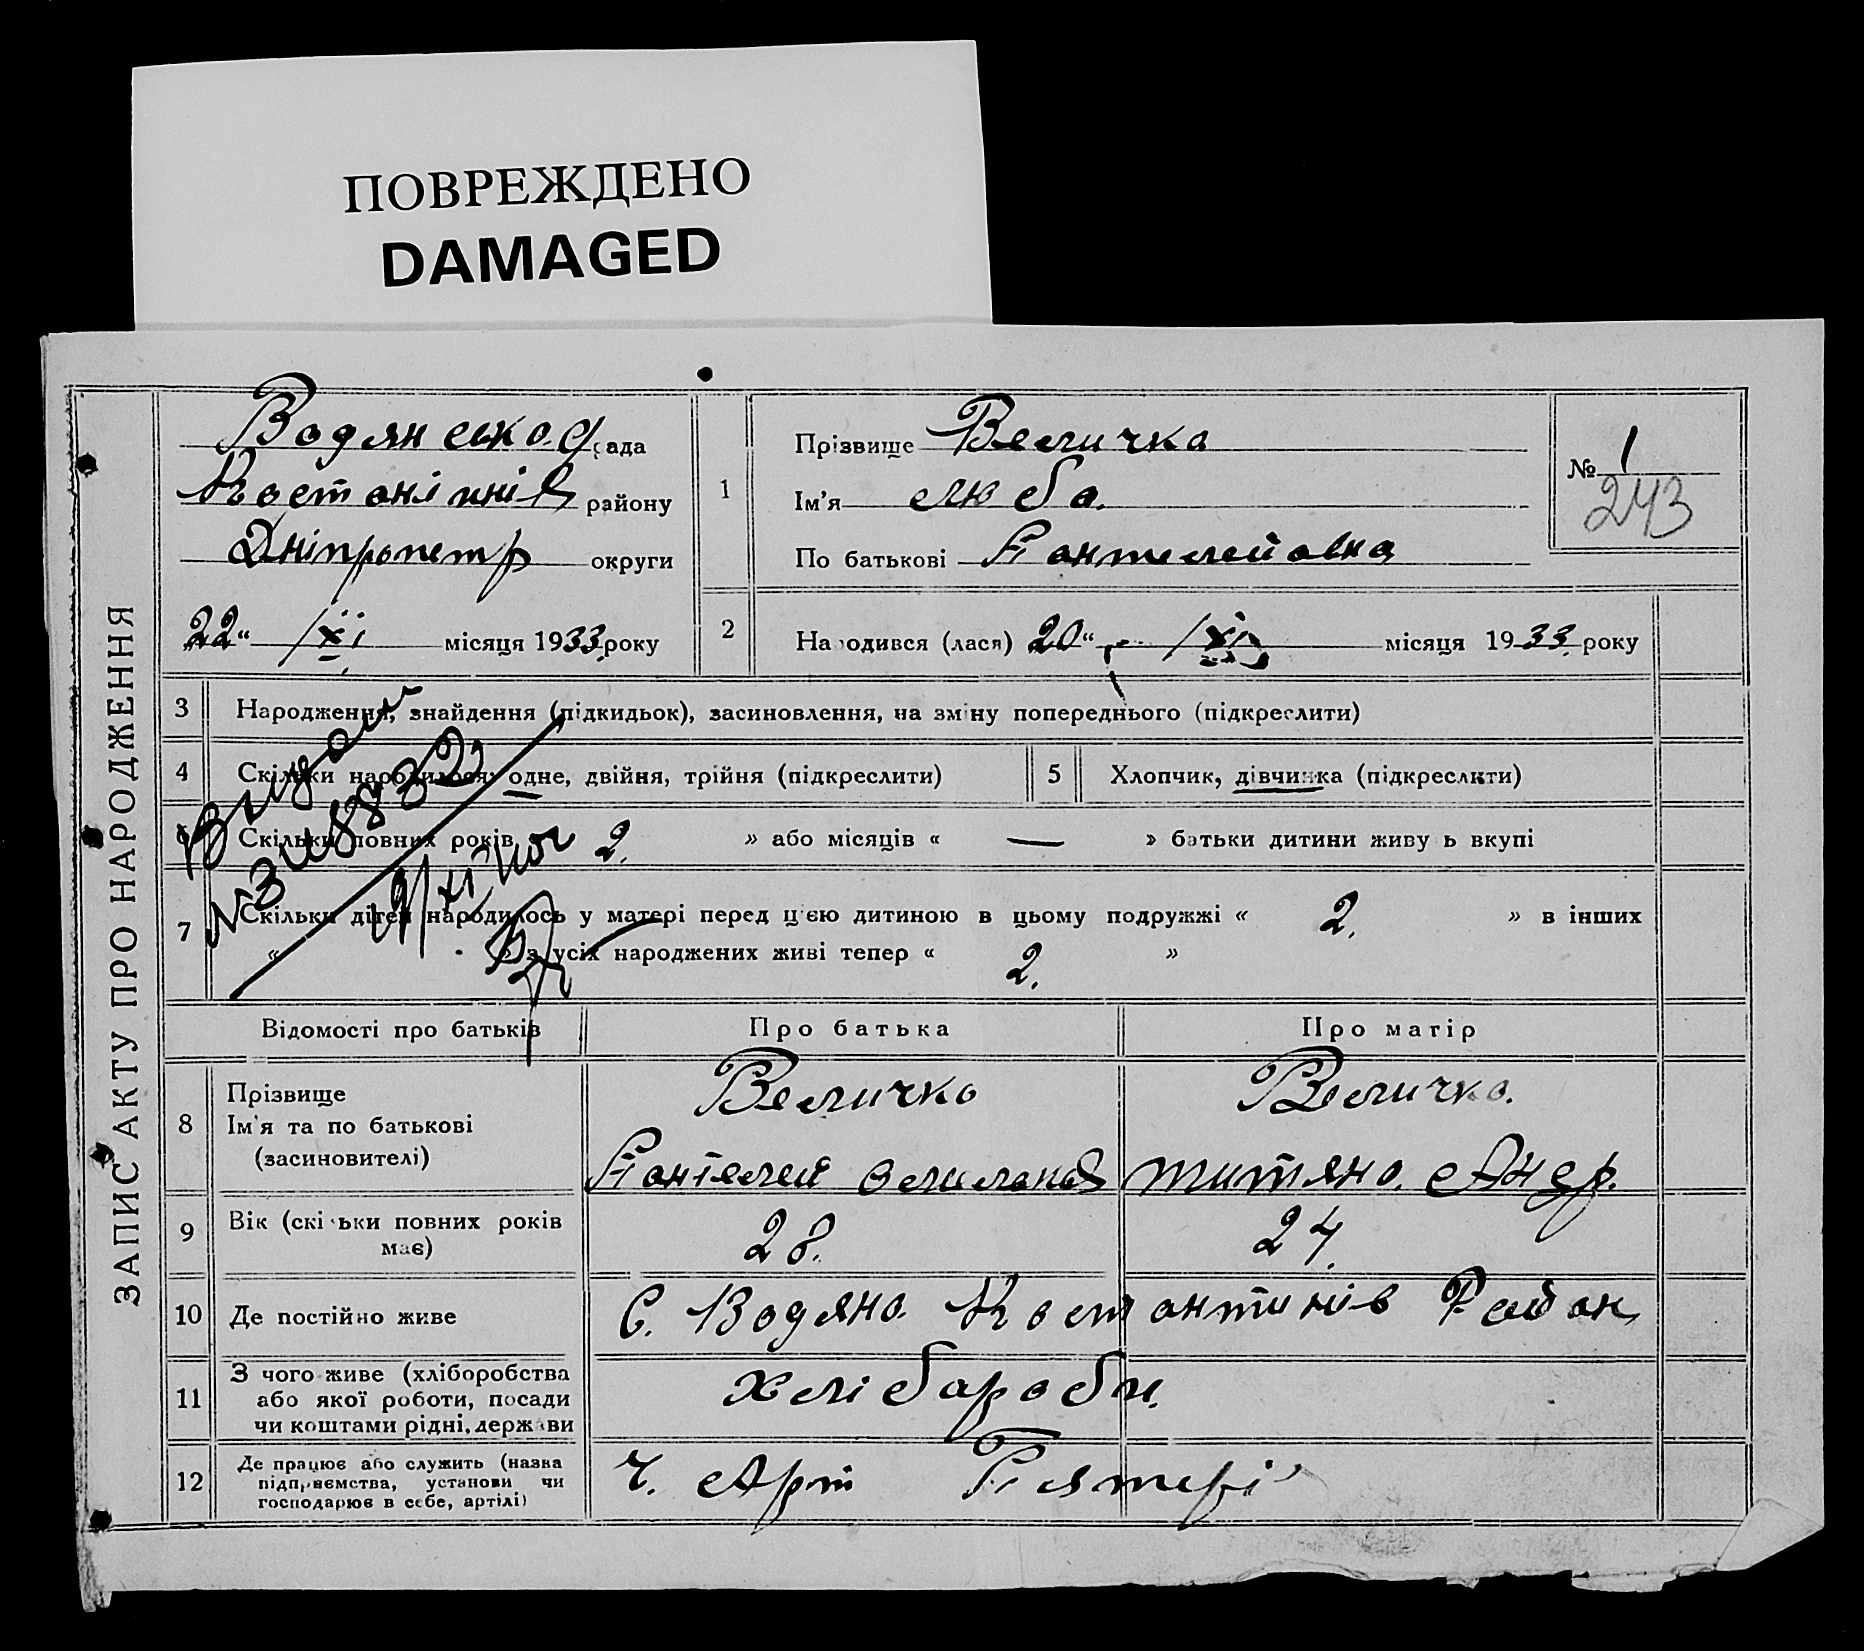 ПОВРЕЖДЕНО
DAMAGED
ЗАПИС АКТУ ПРО НАРОДЖЕННЯ
Водянсько рада
району
Дніпропетр округи
22 " XI місяця 1933 року
1 Прізвище Величко
Ім'я Люба.
По батькові Пантелейовна
№ 1
243
2 Народився (лася) 20 " XI місяця 1933 року
3 Народження, знайдення (підкидьок), засиновлення, на зміну попереднього (підкреслити)
4 Скільки народилося: одне, двійня, трійня (підкреслити)
5 Хлопчик, дівчинка (підкреслити)
6 Скільки повних років 2. » або місяців « — » батьки дитини живу ь вкупі
7 Скільки дітей народилось у матері перед цією дитиною в цьому подружжі « 2. » в інших
« » з усіх народжених живі тепер « 2. »
Відомості про батьків Про батька Про матір
8 Прізвище
Ім'я та по батькові
(засиновителі)
Величко
Пантелей
Величко.
Титяно. Андр.
9 Вік (скільки повних років має) 28. 24.
10 Де постійно живе С. Водяно. Костонтинів Район
11 З чого живе (хліборобства
або якої роботи, посади
чи коштами рідні, держави
Хлібароби.
12 Де працює або служить (назва
підприємства, установи чи
господарює в себе, артілі)
Ч. Арт